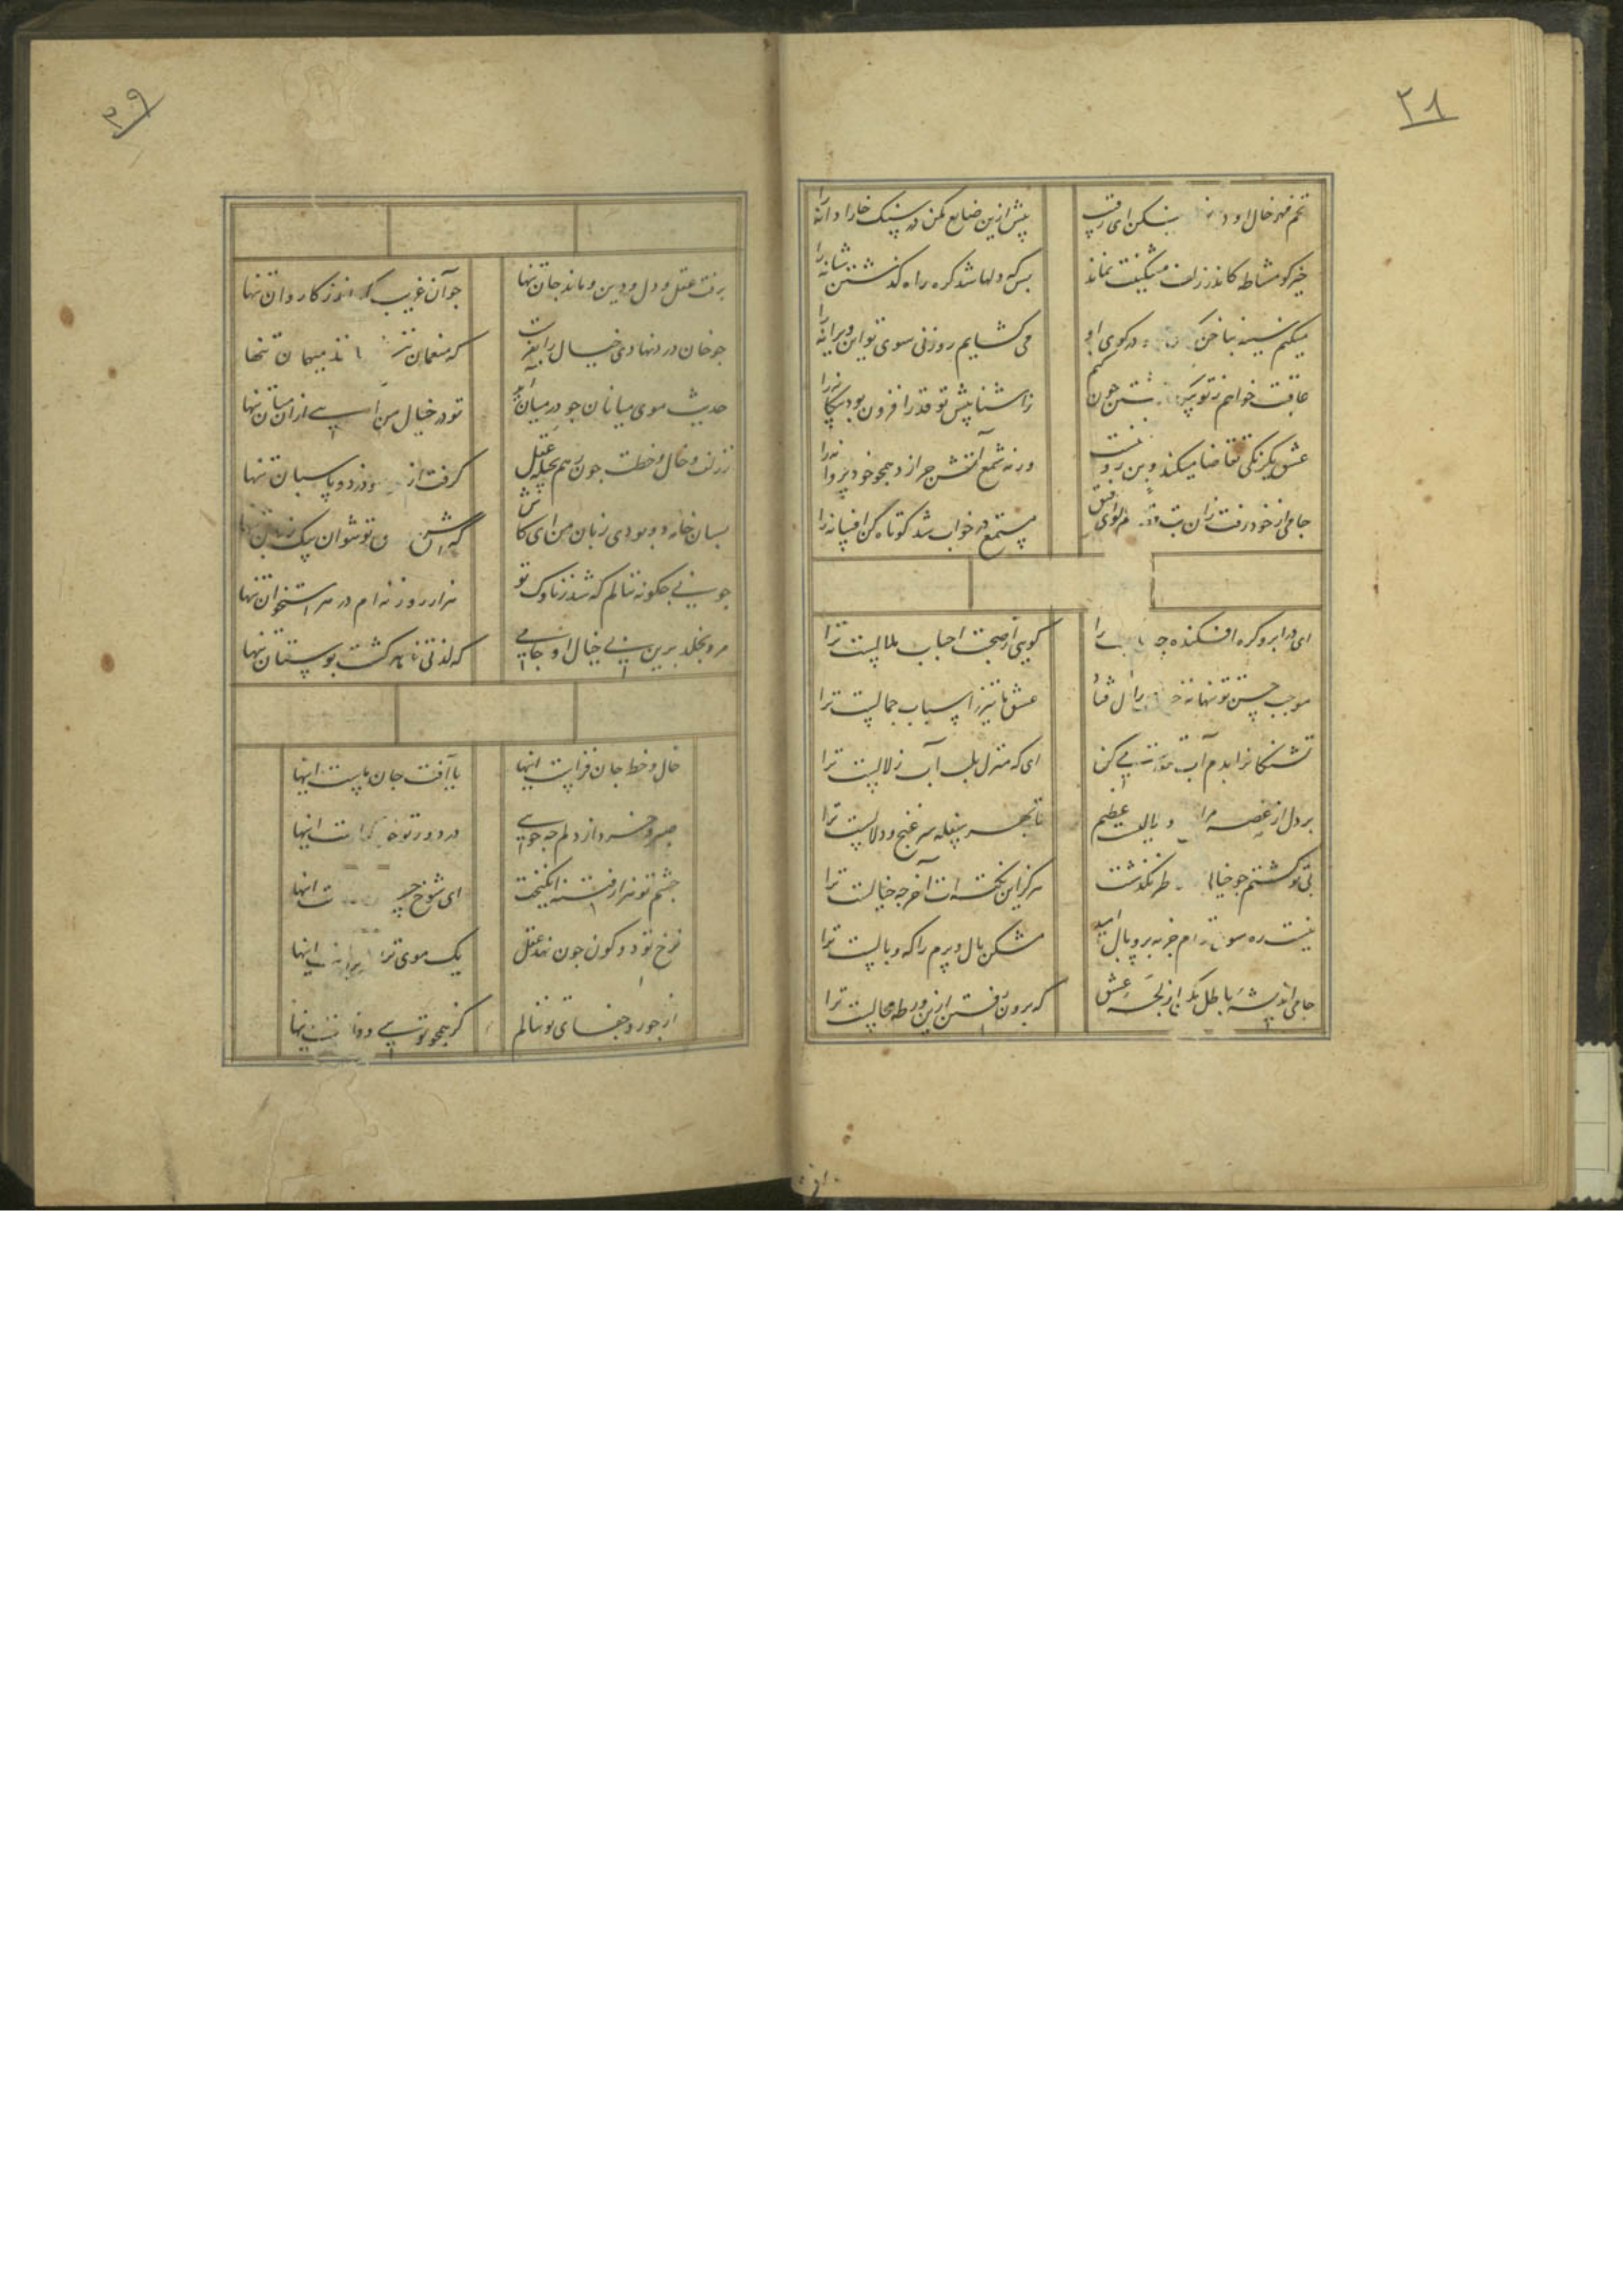 ۲۸
تخم مهر خال او در بسکن ای رقیب
پیش ازین ضایع مکن در سنک خارا دانه را
خیز کو مشاطه کاندر زلف مشکینت نماند
بس که دلها شد کره راه کذشتن شانه را
میکنم سینه بناخن در کوی او
می کشایم روزنی سوی تو این ویرانه را
عاقبت خواهم ز تو شستن چون کنم
زاشنا پیش تو قدر افزون بود بیکانه را
عشق یکرنکی تقاضا میکند وین روشنست
ورنه شمع آتش چرا زد همچو خود پروانه را
جامی از خود رفت زان لب
مستمع در خواب شد کوتاه کن افسانه را
ای در ابرو کره افکنده چه را
کویی از صحبت احباب ملالیست ترا
موجب حسن تو تنها نه
عشق ما نیز ز اسباب جمالیست ترا
تشنکانرا بدم آب
ای که منزل بلب آب زلالیست ترا
بر دل از غصه مرا و بالیست عظیم
تا بهر سفله سر غنج و دلالیست ترا
بی تو کشتم چو خیالی
هرکز این نکته نکذشت آخر چه خیالست ترا
نیست ره سوی توام جز به پر و بال امید
مشکن بال و پرم را که وبالیست ترا
جامی اندیشه باطل بکذار از لجه عشق
که برون رفتن ازین ورطه محالیست ترا
۲۹
برفت عقل و دل و دین و ماند جان تنها
چو آن غریب که ماند ز کاروان تنها
چو خان درد نهادی خیال را بفرست
که منعمان ننشانند میهمان تنها
حدیث موی میانان چو در میان آید
تو در خیال من آیی از ان میان تنها
ز زلف و خال و خطت چون رهم بحیله عقل
کرفت از دزد و پاسبان تنها
بسان خامه دو بودی زبان من ای کاش
که شرح تو نتوان بیک زبان تنها
چو نی چکونه ننالم که شد ز ناوک تو
هزار روزنه ام در هر استخوان تنها
مرو بخلد برین بی خیال او جامی
که لذتی ندهد کشت بوستان تنها
خال و خط جان فزاست اینها
یا آفت جان ماست اینها
صبر و خرد از دلم چه جویی
در دور تو کجاست اینها
چشم تو هزار فتنه انکیخت
ای شوخ چه اینها
نرخ تو دو کون چون نهد عقل
یک موی ترا بهاست اینها
از جور و جفای تو ننالم
کز همچو تویی وفاست اینها